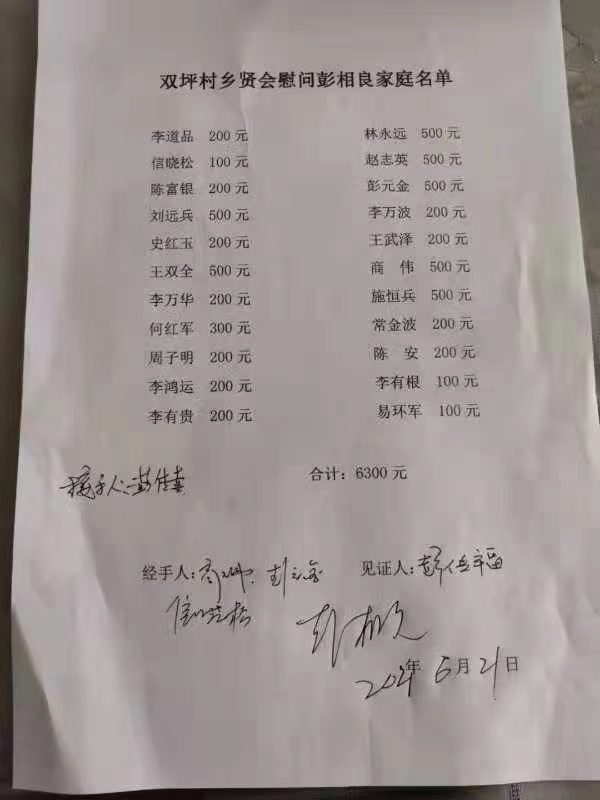 双坪村乡贤会慰问彭相良家庭名单
李道品 200 元 林永远 500 元
信晓松 100 元 赵志英 500 元
陈富银 200 元 彭元金 500 元
刘远兵 500 元 李万波 200 元
史红玉 200 元 王武泽 200 元
王双全 500 元 商 伟 500 元
李万华 200 元 施恒兵 500 元
何红军 300 元 常金波 200 元
周子明 200 元 陈 安 200 元
李鸿运 200 元 李有根 100 元
李有贵 200 元 易环军 100 元
合计：6300 元
接手人：彭佳喜
经手人： 见证人：
信晓松
年 6月21日